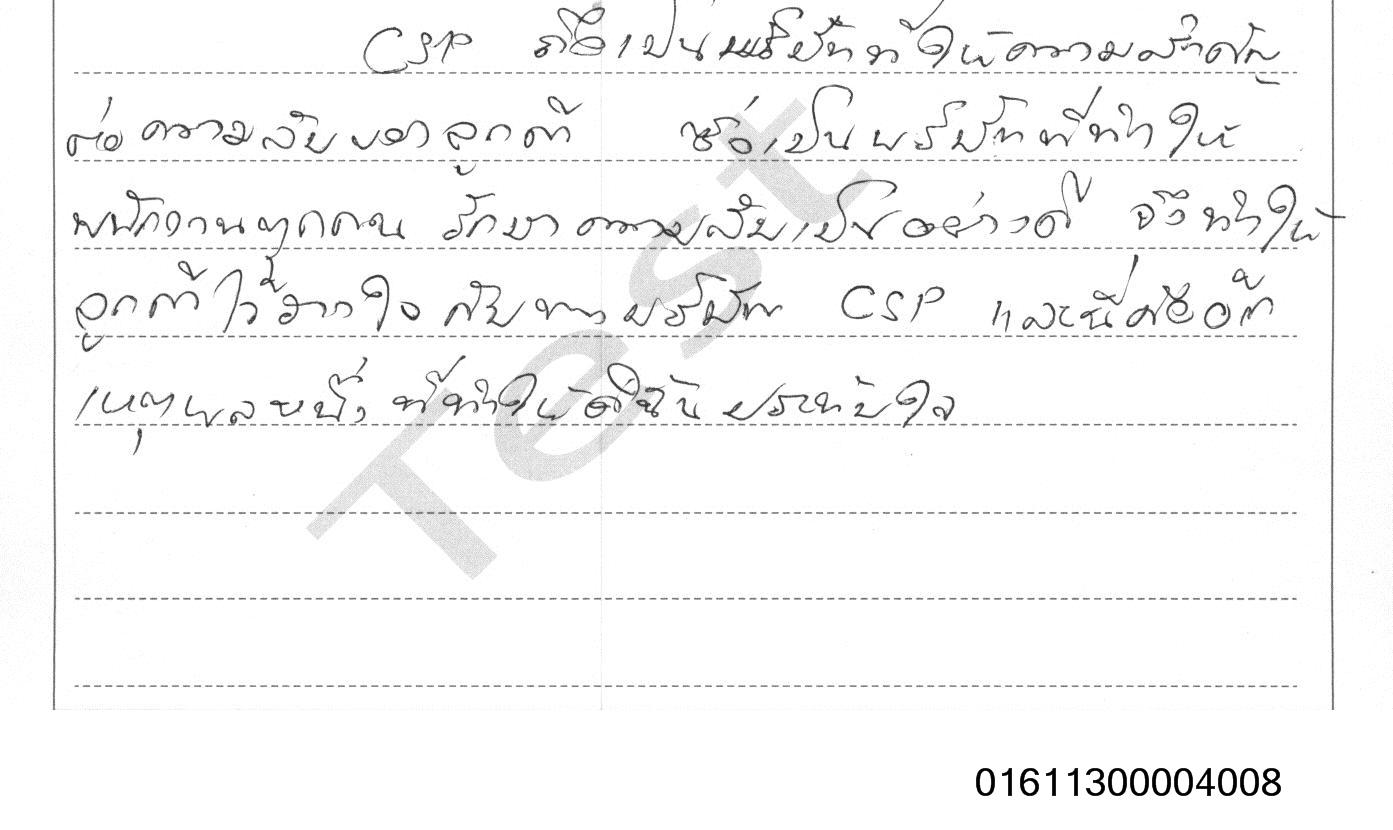 CSP ถือเป็นบริษัทที่ให้ความสำคัญ
ต่อความลับของลูกค้า ซึ่งเป็นบริษัทที่ทำให้
พนักงานทุกคน รักษาความลับเป็นอย่างดี จึงทำให้
ลูกค้าไว้วางใจ กับทางบริษัท CSP และนี่คืออีก
เหตุผลหนึ่ง ที่ทำให้ดิฉัน ประทับใจ
Test
01611300004008